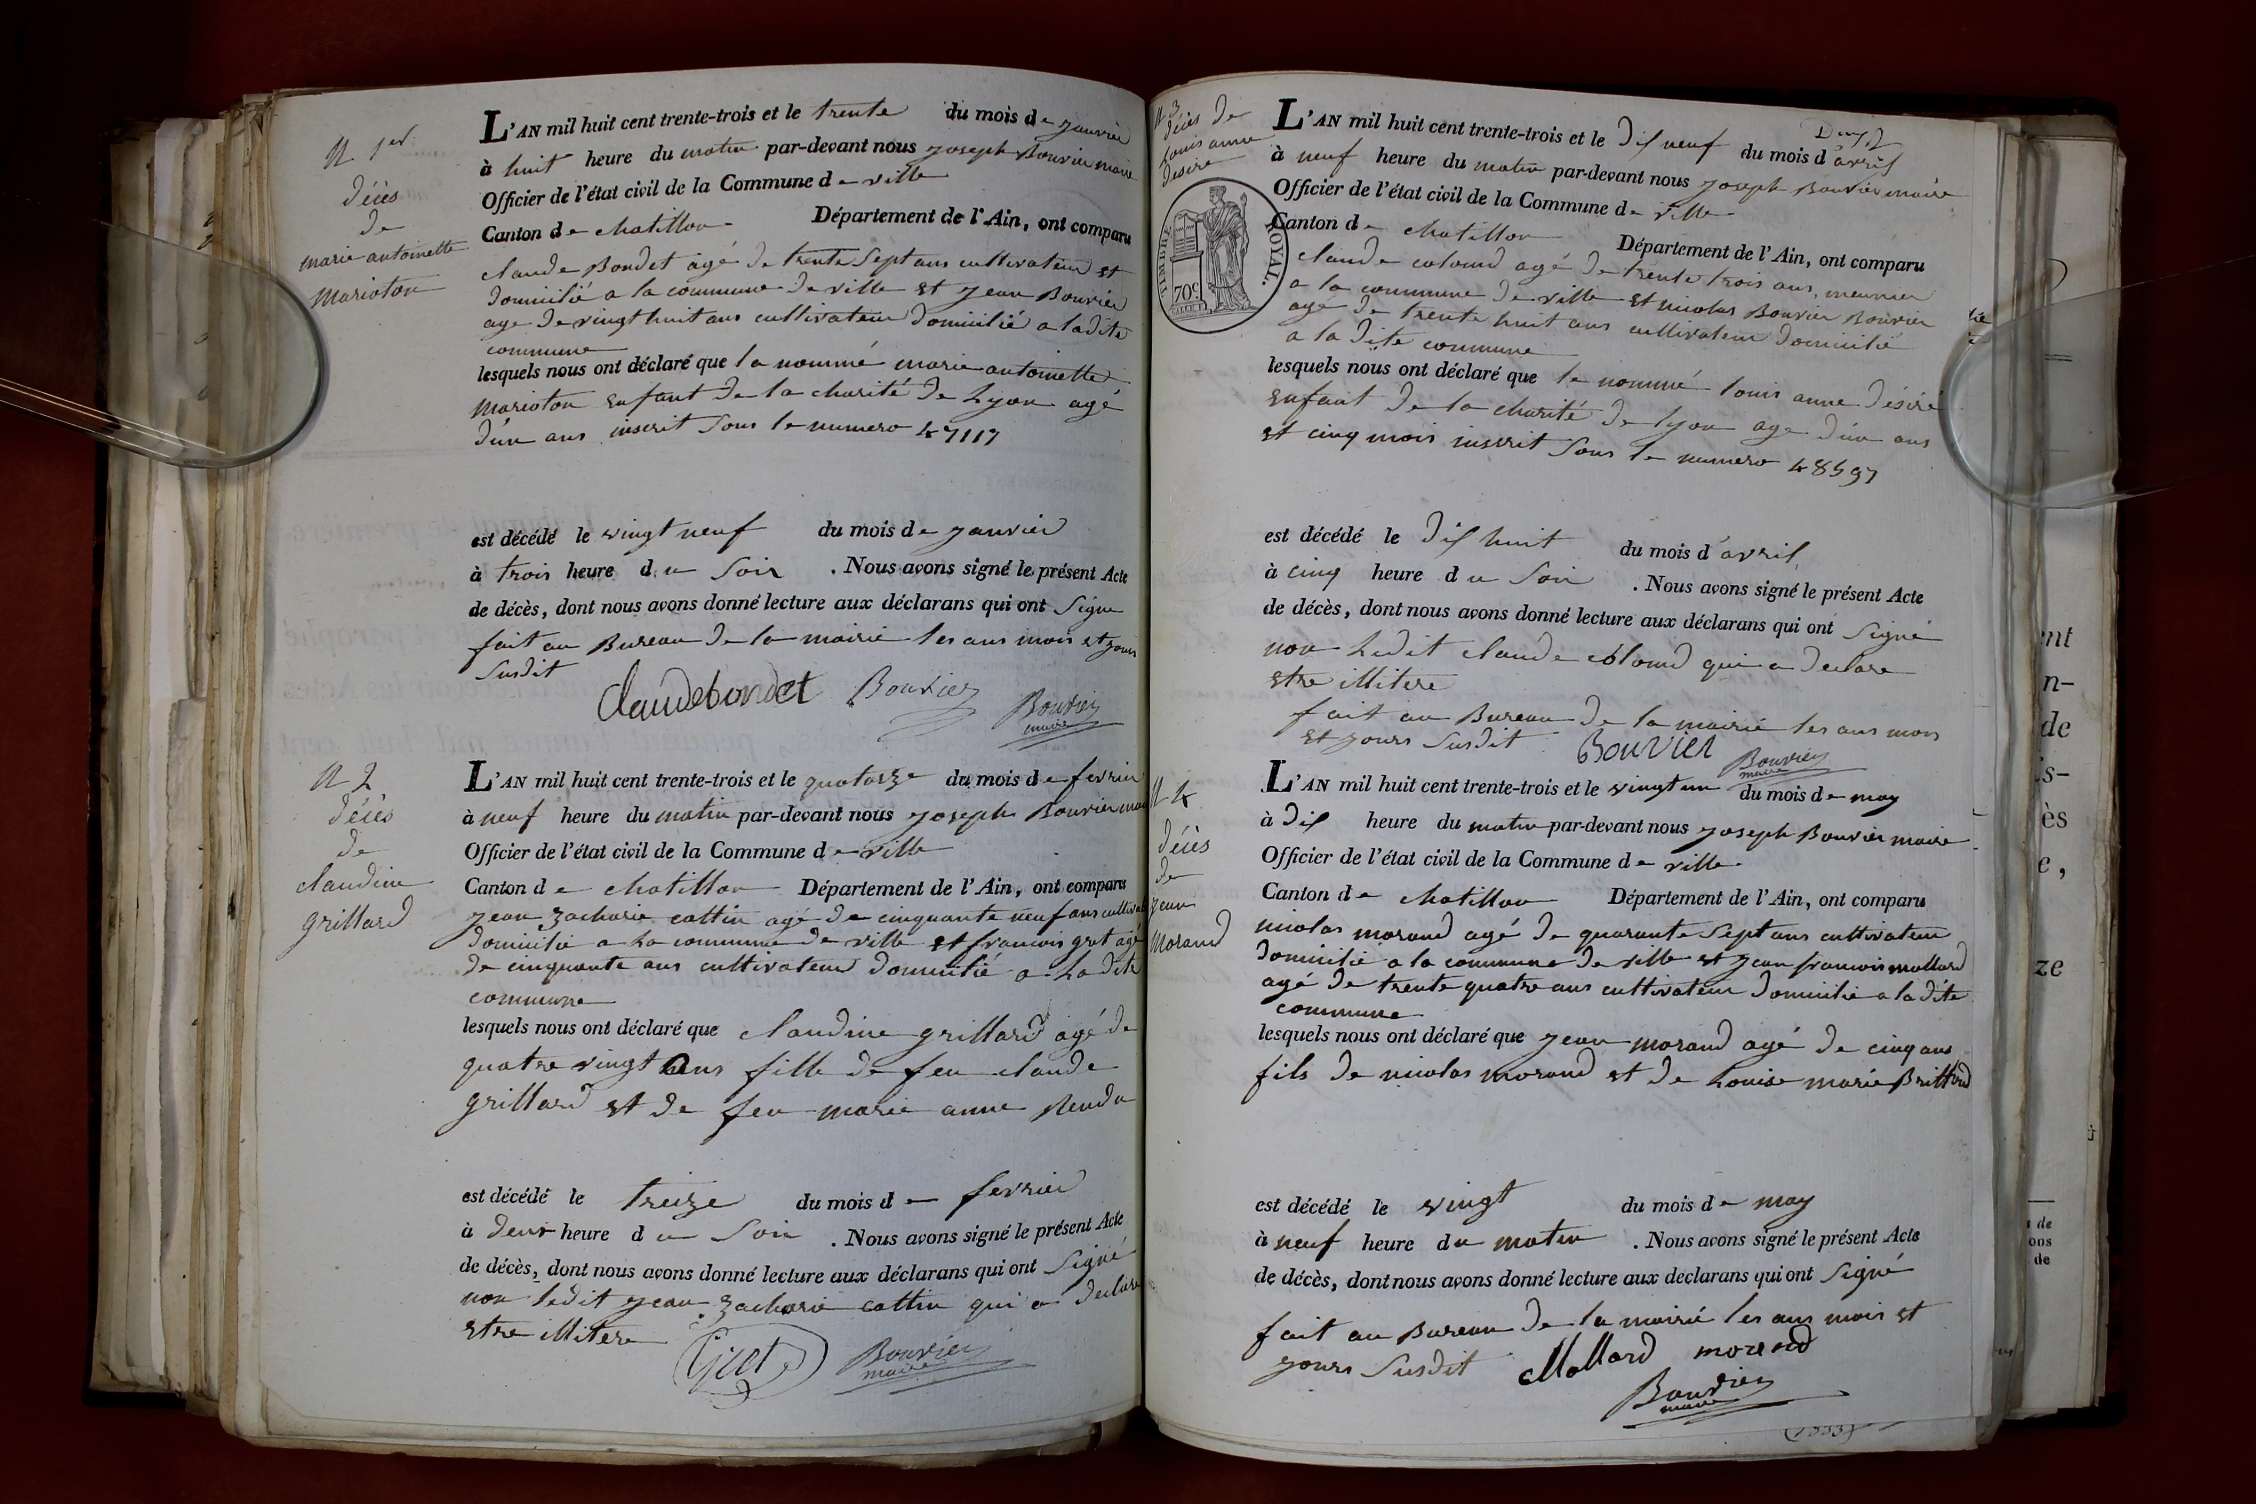 N 1er
décès
de
marie antoinette
Marioton
L'AN mil huit cent trente-trois et le trente du mois de janvier
à huit heure du matin par-devant nous joseph Bouvier maire
Officier de l'état civil de la Commune de ville
Canton de chatillon Département de l'Ain, ont comparu
claude Bondet agé de trente sept ans cultivateur et
domicilié a la commune de ville et jean Bouvier
age de vingt huit ans cultivateur domicilié a la dite
commune
lesquels nous ont déclaré que la nommé marie antoinette
Marioton enfant de la charité de Lyon agé
d'un ans inscrit sous le numero 47117
est décédé le vingt neuf du mois de janvier
à trois heure du soir . Nous avons signé le présent Acte
de décès, dont nous avons donné lecture aux déclarans qui ont signe
fait au Bureau de la mairie les ans mois et jours
susdit
Claude bondet Bouvier Bouvier
maire
N 2
décès
de
claudine
grillard
L'AN mil huit cent trente-trois et le quatorze du mois de fevrier
à neuf heure du matin par-devant nous joseph Bouvier
Officier de l'état civil de la Commune de ville
Canton de chatillon Département de l'Ain, ont comparu
jean zacharie cattin agé de cinquante neuf ans
domicilié a La commune de ville et francois grot agé
de cinquante ans cultivateur domicilié a La dite
commune
lesquels nous ont déclaré que claudine grillard agé de
quatre vingt ans fille de feu claude
grillard et de feu marie anne
est décédé le treize du mois de fevrier
à deux heure du soir . Nous avons signé le présent Acte
de décès, dont nous avons donné lecture aux déclarans qui ont signé
non ledit jean zacharie cattin qui a declare
etre illitere
Grot Bouvier
maire
N 3
décès de
Louis anne
desire
TIMBRE ROYAL.
70c
L'AN mil huit cent trente-trois et le dix neuf du mois d'avril
à neuf heure du matin par-devant nous joseph Bouvier maire
Officier de l'état civil de la Commune de ville
Canton de chatillon Département de l'Ain, ont comparu
claude colomd agé de trente trois ans, meunier
a la commune de ville et nicolas Bouvier Bouvier
agé de trente huit ans cultivateur domicilié
a la dite commune
lesquels nous ont déclaré que le nommé louis anne désiré
enfant de la charité de lyon age d'un ans
et cinq mois inscrit sous le numero 48597
est décédé le dix huit du mois d'avril
à cinq heure du soir . Nous avons signé le présent Acte
de décès, dont nous avons donné lecture aux déclarans qui ont signé
non Ledit claude colomd qui a declare
etre illitere
fait au Bureau de la mairie les ans mois
et jours susdit Bouvier Bouvier
maire
N 4
décès
de
jean
Morand
L'AN mil huit cent trente-trois et le vingt un du mois de may
à dix heure du matin par-devant nous joseph Bouvier maire
Officier de l'état civil de la Commune de ville
Canton de chatillon Département de l'Ain, ont comparu
nicolas morand agé de quarante sept ans cultivateur
domicilié a la commune de ville et jean francois mollard
agé de trente quatre ans cultivateur domicilié a la dite
commune
lesquels nous ont déclaré que jean morand agé de cinq ans
fils de nicolas morand et de Louise marie
est décédé le vingt du mois de may
à neuf heure du matin . Nous avons signé le présent Acte
de décès, dont nous avons donné lecture aux declarans qui ont signé
fait au Bureau de la mairie les ans mois et
jours susdit Mollard morand
Bouvier
maire
(1833)